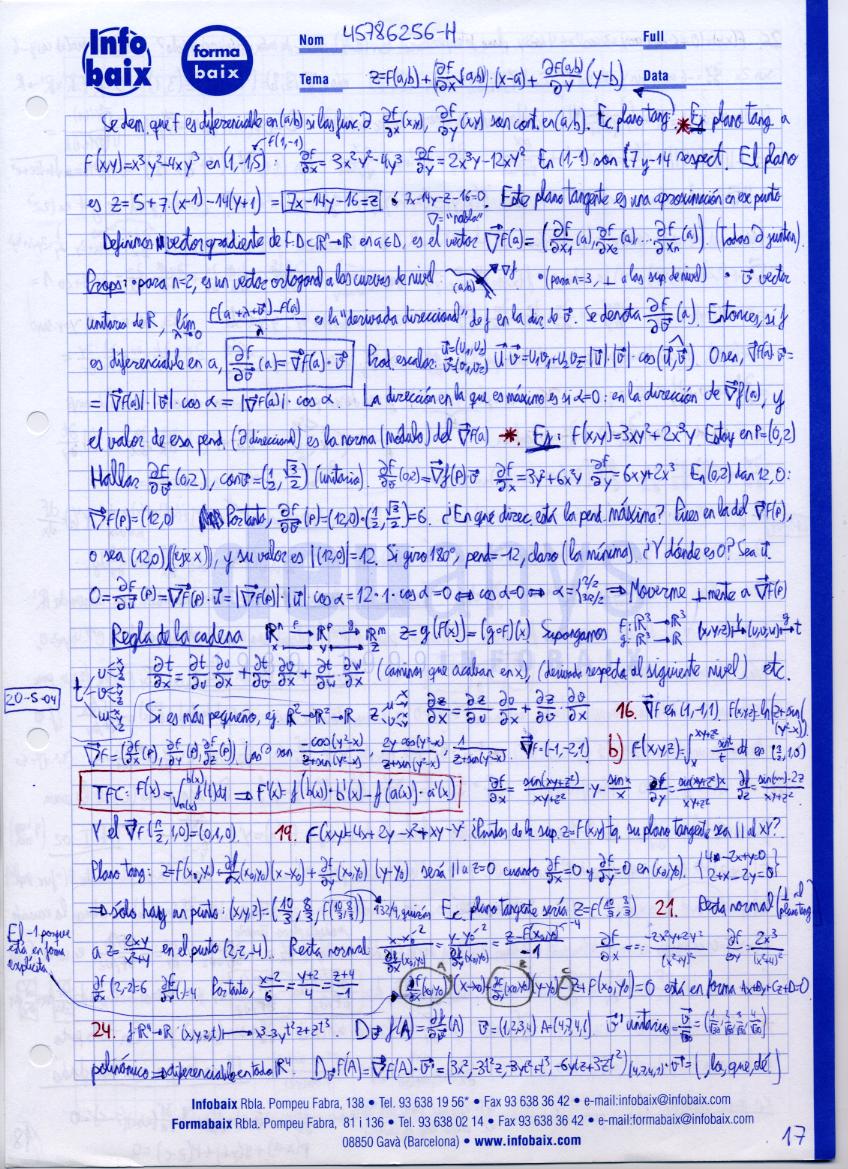 Infobaix
forma baix
Nom 45786256-H Full
Tema z=F(a,b)+(∂F/∂x (a,b))·(x-a)+∂F(a,b)/∂y (y-b) Data
Se dem. que f es diferenciable en (a,b) si las func. ∂ ∂F/∂x (x,y), ∂F/∂y (x,y) son cont. en (a,b). Ec. plano tang. * Ej: plano tang. a
F(x,y)=x³y²-4xy³ en (1,-1,5) F(1,-1) : ∂F/∂x = 3x²y²-4y³ ∂F/∂y = 2x³y-12xy² En (1,-1) son 7 y -14 respect. El plano
es z=5+7·(x-1)-14(y+1) = 7x-14y-16=z ó 7x-14y-z-16=0. Este plano tangente es una aproximación en ese punto
∇="nabla"
Definimos vector gradiente de f:D⊂ℝⁿ→ℝ en a∈D, es el vector ∇F(a)=(∂F/∂x₁(a), ∂F/∂x₂(a), ... ∂F/∂xₙ(a)). (Todas ∂ juntas).
Props: • para n=2, es un vector ortogonal a las curvas de nivel (a,b) ∇f • (para n=3, ⊥ a las sup. de nivel) • v vector
unitario de ℝ, lím λ→0 F(a+λ·v)-F(a)/λ es la "derivada direccional" de f en la dir. de v. Se denota ∂F/∂v (a). Entonces, si f
es diferenciable en a, ∂F/∂v (a) = ∇F(a)·v Prod. escalar: u=(u₁,u₂) v=(v₁,v₂) u·v=u₁v₁+u₂v₂=|u|·|v|·cos(u,v) O sea, ∇F(a)·v=
=|∇F(a)|·|v|·cos α = |∇F(a)|·cos α. La dirección en la que es máximo es si α=0: en la dirección de ∇f(a), y
el valor de esa pend. (∂ direccional) es la norma (módulo) del ∇F(a) *. Ej: F(x,y)=3xy²+2x³y Estoy en P=(0,2)
Hallar ∂F/∂v (0,2), con v=(1/2, √3/2) (unitario). ∂F/∂v (0,2)=∇f(P)·v ∂F/∂x=3y²+6x²y ∂F/∂y=6xy+2x³ En (0,2) dan 12,0:
∇F(P)=(12,0) Por tanto, ∂F/∂v (P)=(12,0)·(1/2, √3/2)=6. ¿En que direc. está la pend. máxima? Pues en la del ∇F(P),
o sea (12,0) (eje x), y su valor es |(12,0)|=12. Si giro 180º, pend=-12, claro (la mínima). ¿Y dónde es 0? Sea u.
0=∂F/∂u (P)=∇F(P)·u=|∇F(P)|·|u|·cos α=12·1·cos α=0 ⇔ cos α=0 ⇔ α= π/2 3π/2 ⇒ Moverme ⊥mente a ∇F(P)
Regla de la cadena ℝⁿ →F ℝᵖ →g ℝᵐ z=g(F(x))=(g∘F)(x) Supongamos f:ℝ³→ℝ³ g:ℝ³→ℝ (x,y,z)→(u,v,w)→t
∂t/∂x = ∂t/∂u ∂u/∂x + ∂t/∂v ∂v/∂x + ∂t/∂w ∂w/∂x (caminos que acaban en x), (derivado respecto al siguiente nivel) etc.
20-5-04
Si es más pequeño, ej. ℝ²→ℝ²→ℝ ∂z/∂x = ∂z/∂u ∂u/∂x + ∂z/∂v ∂v/∂x 16. ∇F en (1,-1,1). F(x,y,z)=ln(z+sin(y²-x)).
∇F=(∂F/∂x(P), ∂F/∂y(P), ∂F/∂z(P)) Las ∂ son -cos(y²-x)/z+sin(y²-x), 2y cos(y²-x)/z+sin(y²-x), 1/z+sin(y²-x). ∇F=(-1,-2,1) b) F(x,y,z)=∫ₓ^xy+z² sint/t dt en (π/2,1,0)
TFC: F(x)=∫ₐ₍ₓ₎^b(x) f(t)dt ⇒ F'(x)=f(b(x))·b'(x)-f(a(x))·a'(x) ∂F/∂x= sin(xy+z²)/xy+z² ·y - sin x/x ∂F/∂y= sin(xy+z²)x/xy+z² ∂F/∂z= sin(~)·2z/xy+z²
Y el ∇F(π/2,1,0)=(0,1,0). 19. F(x,y)=4x+2y-x²+xy-y² ¿Puntos de la sup. z=F(x,y) tq. su plano tangente sea || al XY?
Plano tang: z=F(x₀,y₀)+∂F/∂x(x₀,y₀)(x-x₀)+∂F/∂y(x₀,y₀)(y-y₀) será || a z=0 cuando ∂F/∂x=0 y ∂F/∂y=0 en (x₀,y₀). {4-2x+y=0 2+x-2y=0}
⇒ sólo hay un punto: (x,y,z)=(10/3, 8/3, F(10/3, 8/3)) Ec. plano tangente sería z=F(10/3, 8/3) 21. Recta normal (⊥ al plano tang.)
El -1 porque está en forma explícita
a z=2xy/x²+y en el punto (2,-2,-4). Recta normal x-x₀/∂F/∂x(x₀,y₀) = y-y₀/∂F/∂y(x₀,y₀) = z-F(x₀,y₀)/-1
∂F/∂x (2,-2)=6 Por tanto, x-2/6 = y+2/4 = z+4/-1 ∂F/∂x(x₀,y₀)(x-x₀)+∂F/∂y(x₀,y₀)(y-y₀)-z+F(x₀,y₀)=0 está en forma Ax+By+Cz+D=0
24. f:ℝ⁴→ℝ (x,y,z,t)→x³-3yt²z+zt³. Dv f(A)=∂f/∂v(A) v=(1,2,3,4) A=(4,7,4,1) v' unitario = v/√30 = (1/√30, 2/√30, 3/√30, 4/√30)
polinómico ⇒ diferenciable en todo ℝ⁴. Dv F(A)=∇F(A)·v'=(3x², -3t²z, -3yt²+t³, -6ytz+3zt²)(4,7,4,1)·v'=(, lo, que, dé)
Infobaix Rbla. Pompeu Fabra, 138 • Tel. 93 638 19 56* • Fax 93 638 36 42 • e-mail:infobaix@infobaix.com
Formabaix Rbla. Pompeu Fabra, 81 i 136 • Tel. 93 638 02 14 • Fax 93 638 36 42 • e-mail:formabaix@infobaix.com
08850 Gavà (Barcelona) • www.infobaix.com
17